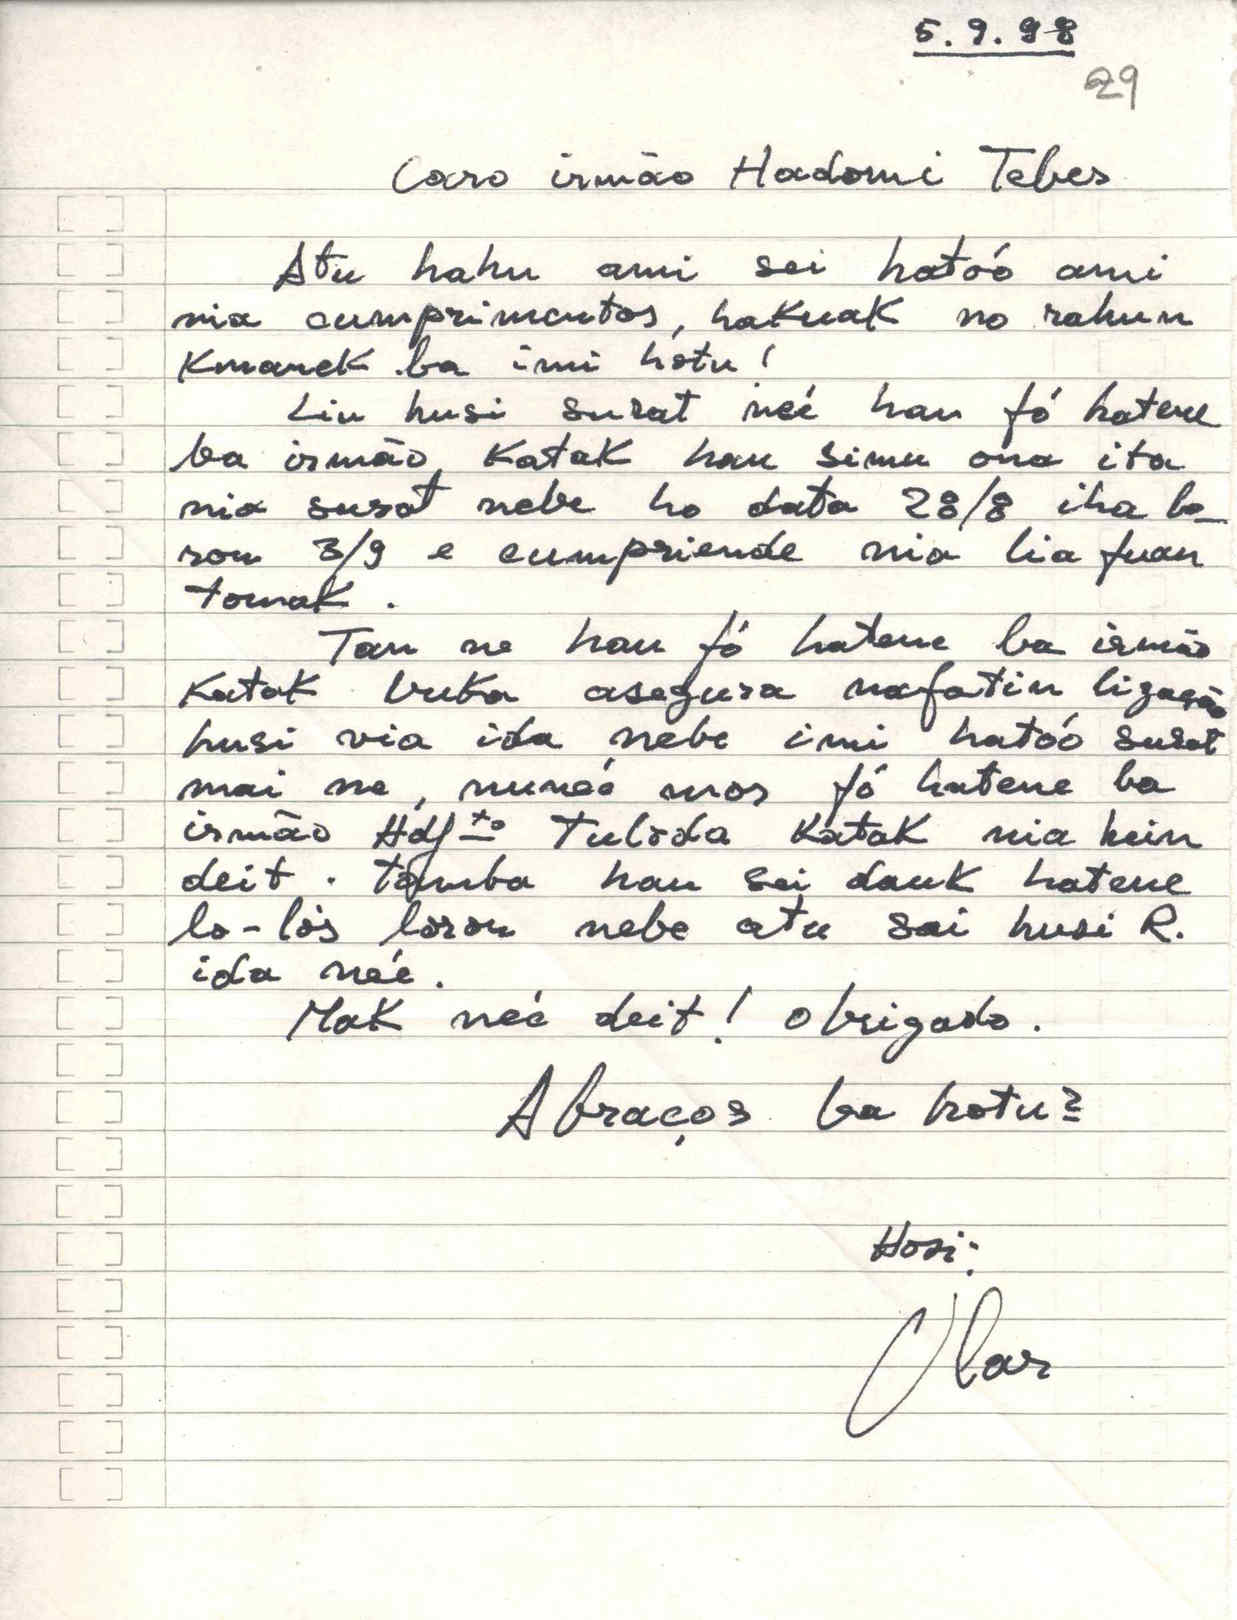 5.9.98
29
Caro irmão Hadomi Tebes
Atu hahu ami sei hatoó ami
nia cumprimentos, hakuak no rahun
Kmanek ba imi hotu!
Liu husi surat neé hau fó hatene
ba irmão, Katak hau simu ona ita
nia surat nebe ho data 28/8 iha lo-
ron 3/9 e cumpriende nia lia fuan
tomak.
Tan ne hau fó hatene ba irmão
Katak buka asegura nafatin ligação
husi via ida nebe imi hatoó surat
mai ne, nuneé mos fó hatene ba
irmão Tuloda Katak nia hein
deit. tamba hau sei dauk hatene
lo-lós loron nebe atu sai husi R.
ida neé.
Mak neé deit! Obrigado.
Abraços ba hotu2
Hosi:
Ular